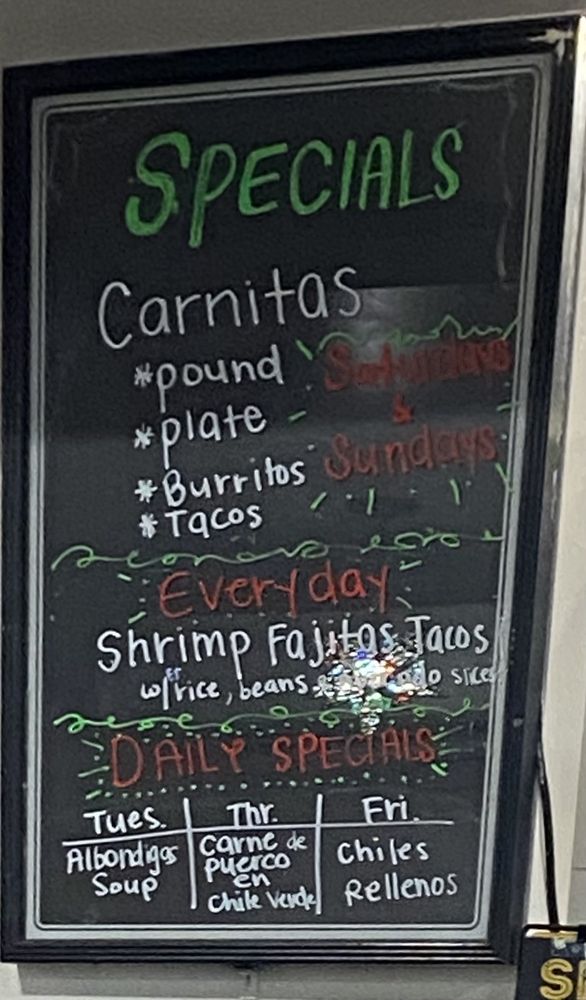 SPECIALS
Carnitas
*pound
*plate
*Burritos
*Tacos
Saturdays
&
Sundays
Everyday
Shrimp Fajitas Tacos
w/rice, beans slices
DAILY SPECIALS
Tues. Thr. Fri.
Albondigas Soup
Carne de
puerco
en
Chile Verde
Chiles
Rellenos